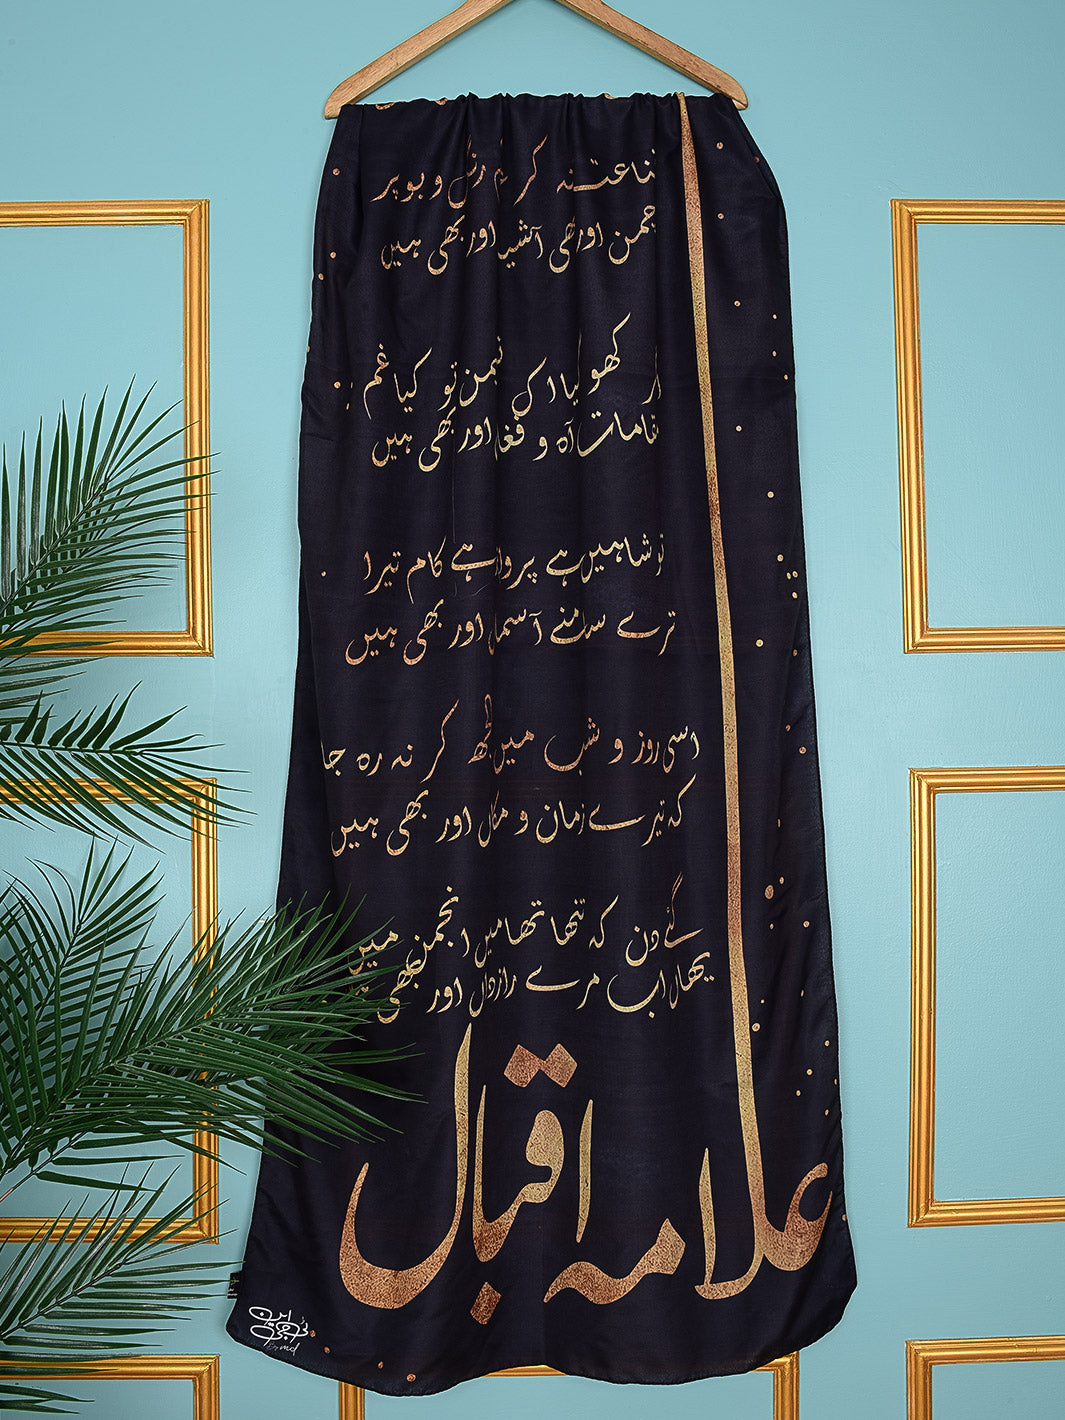 قناعت نہ کر عالم رنگ و بو پر
چمن اور بھی آشیاں اور بھی ہیں
اگر کھو گیا اک نشیمن تو کیا غم
مقامات آہ و فغاں اور بھی ہیں
تو شاہیں ہے پرواز ہے کام تیرا
ترے سامنے آسماں اور بھی ہیں
اسی روز و شب میں الجھ کر نہ رہ جا
کہ تیرے زمان و مکاں اور بھی ہیں
گئے دن کہ تنہا تھا میں انجمن میں
یہاں اب مرے رازداں اور بھی ہیں
علامہ اقبال